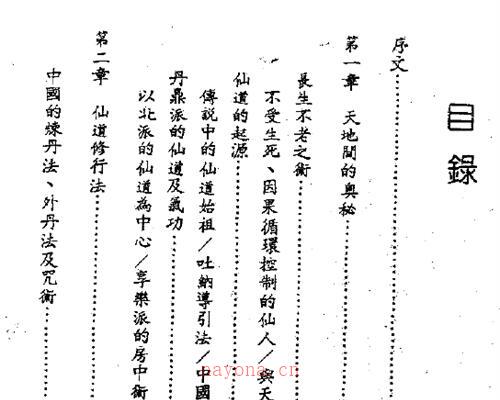 目錄
序文
第一章 天地間的奧秘
長生不老之術
不受生死、因果循環控制的仙人／與天
仙道的起源
傳說中的仙道始祖／吐納導引法／中國
丹鼎派的仙道及氣功
以北派的仙道為中心／享樂派的房中術
第二章 仙道修行法
中國的煉丹法、外丹法及咒術
nayona.cn